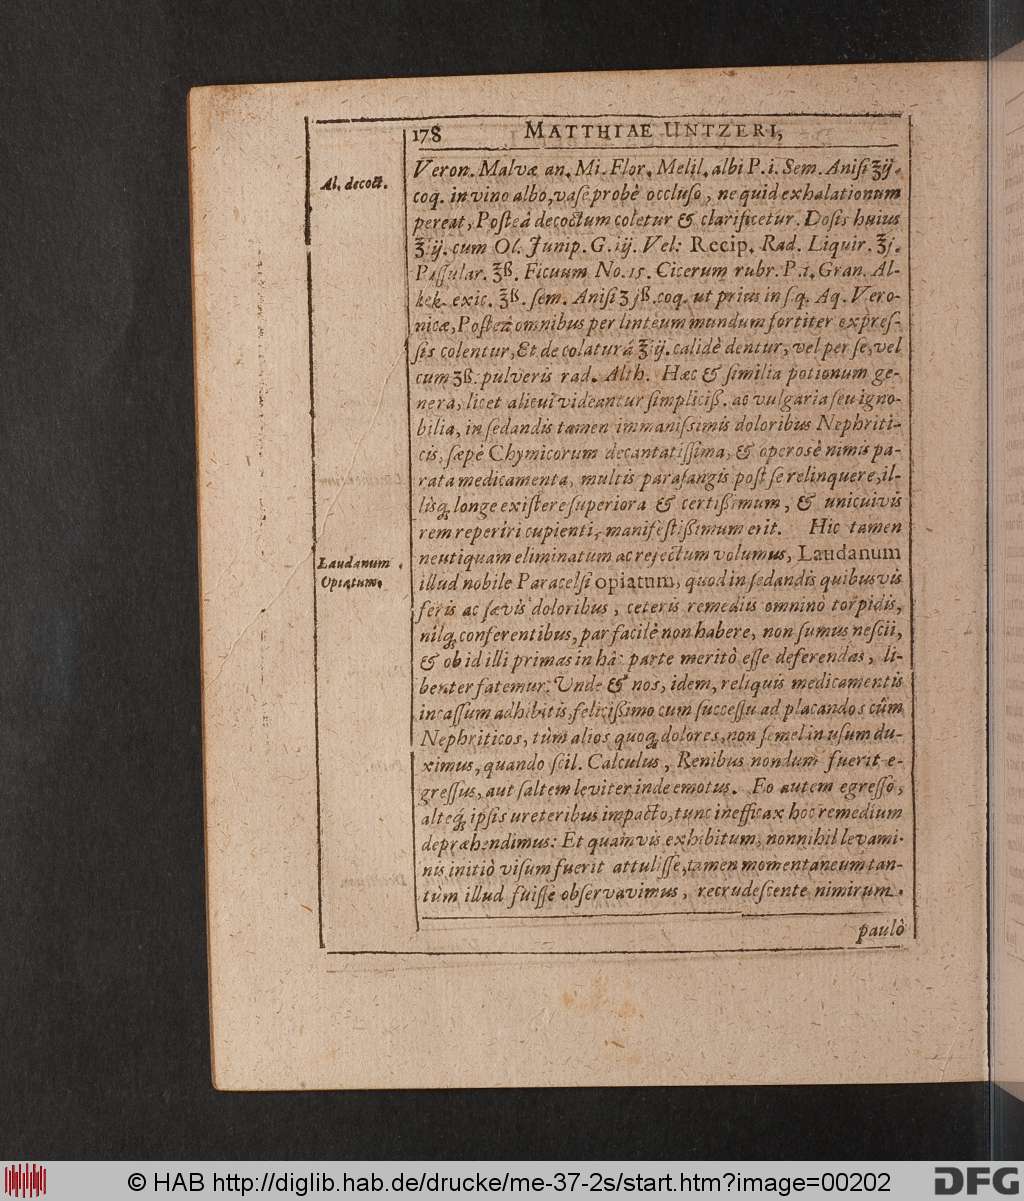 178 MATTHIAE UNTZERI,
Al. decoct.
Veron. Malvæ an. Mi. Flor. Melil. albi P. i. Sem. Anisi ʒij.
coq. in vino albo, vase probè occluso, ne quid exhalationum
pereat, Posteà decoctum coletur & clarificetur. Dosis huius
℥ij. cum Ol. Junip. G. iij. Vel: Recip. Rad. Liquir. ℥j.
Passular. ℥ß. Ficuum No. 15. Cicerum rubr. P. i. Gran. Al-
kek. exic. ℥ß. sem. Anisi ʒjß. coq. ut prius in s.q. Aq. Vero-
nicæ, Posteà omnibus per linteum mundum fortiter expres-
sis colentur, Et de colaturá ℥iij. calidè dentur, vel per se, vel
cum ʒß. pulveris rad. Alth. Hæc & similia potionum ge-
nera, licet alicui videantur simpliciß. ac vulgaria seu igno-
bilia, in sedandis tamen immanissimis doloribus Nephriti-
cis, sæpè Chymicorum decantatissima, & operosè nimis pa-
rata medicamenta, multis parasangis post se relinquere, il-
lisq́ longe existere superiora & certißimum, & unicuivis
rem reperiri cupienti, manifestißimum erit. Hic tamen
neutiquam eliminatum ac rejectum volumus, Laudanum
Laudanum
Opiatum.
illud nobile Paracelsi opiatum, quod in sedandis quibusvis
feris ac sævis doloribus, ceteris remediis omninò torpidis,
nilq́ conferentibus, par facilè non habere, non sumus nescii,
& ob id illi primas in hâc parte meritò esse deferendas, li-
benter fatemur: Unde & nos, idem, reliquis medicamentis
incassum adhibitis, felicißimo cum successu ad placandos cûm
Nephriticos, tùm alios quoq́ dolores, non semel in usum du-
ximus, quando scil. Calculus, Renibus nondum fuerit e-
gressus, aut saltem leviter inde emotus. Eo autem egresso,
alteq́ ipsis ureteribus impacto, tunc inefficax hoc remedium
depræhendimus: Et quamvis exhibitum, nonnihil levami-
nis initiò visum fuerit attulisse, tamen momentaneum tan-
tùm illud fuisse observavimus, recrudescente nimirum
paulò
© HAB http://diglib.hab.de/drucke/me-37-2s/start.htm?image=00202
DFG